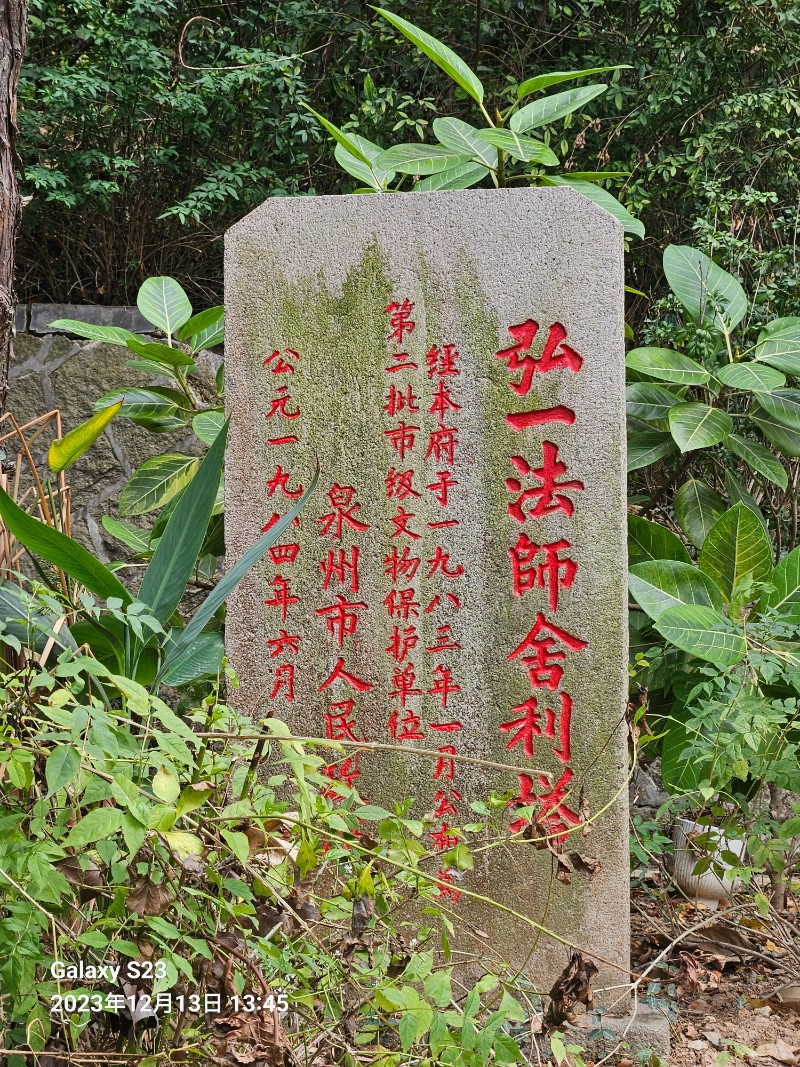 弘一法师舍利塔
经本府于一九八三年一月公布为
第二批市级文物保护单位
泉州市人民政
公元一九八四年六月
Galaxy S23
2023年12月13日 13:45